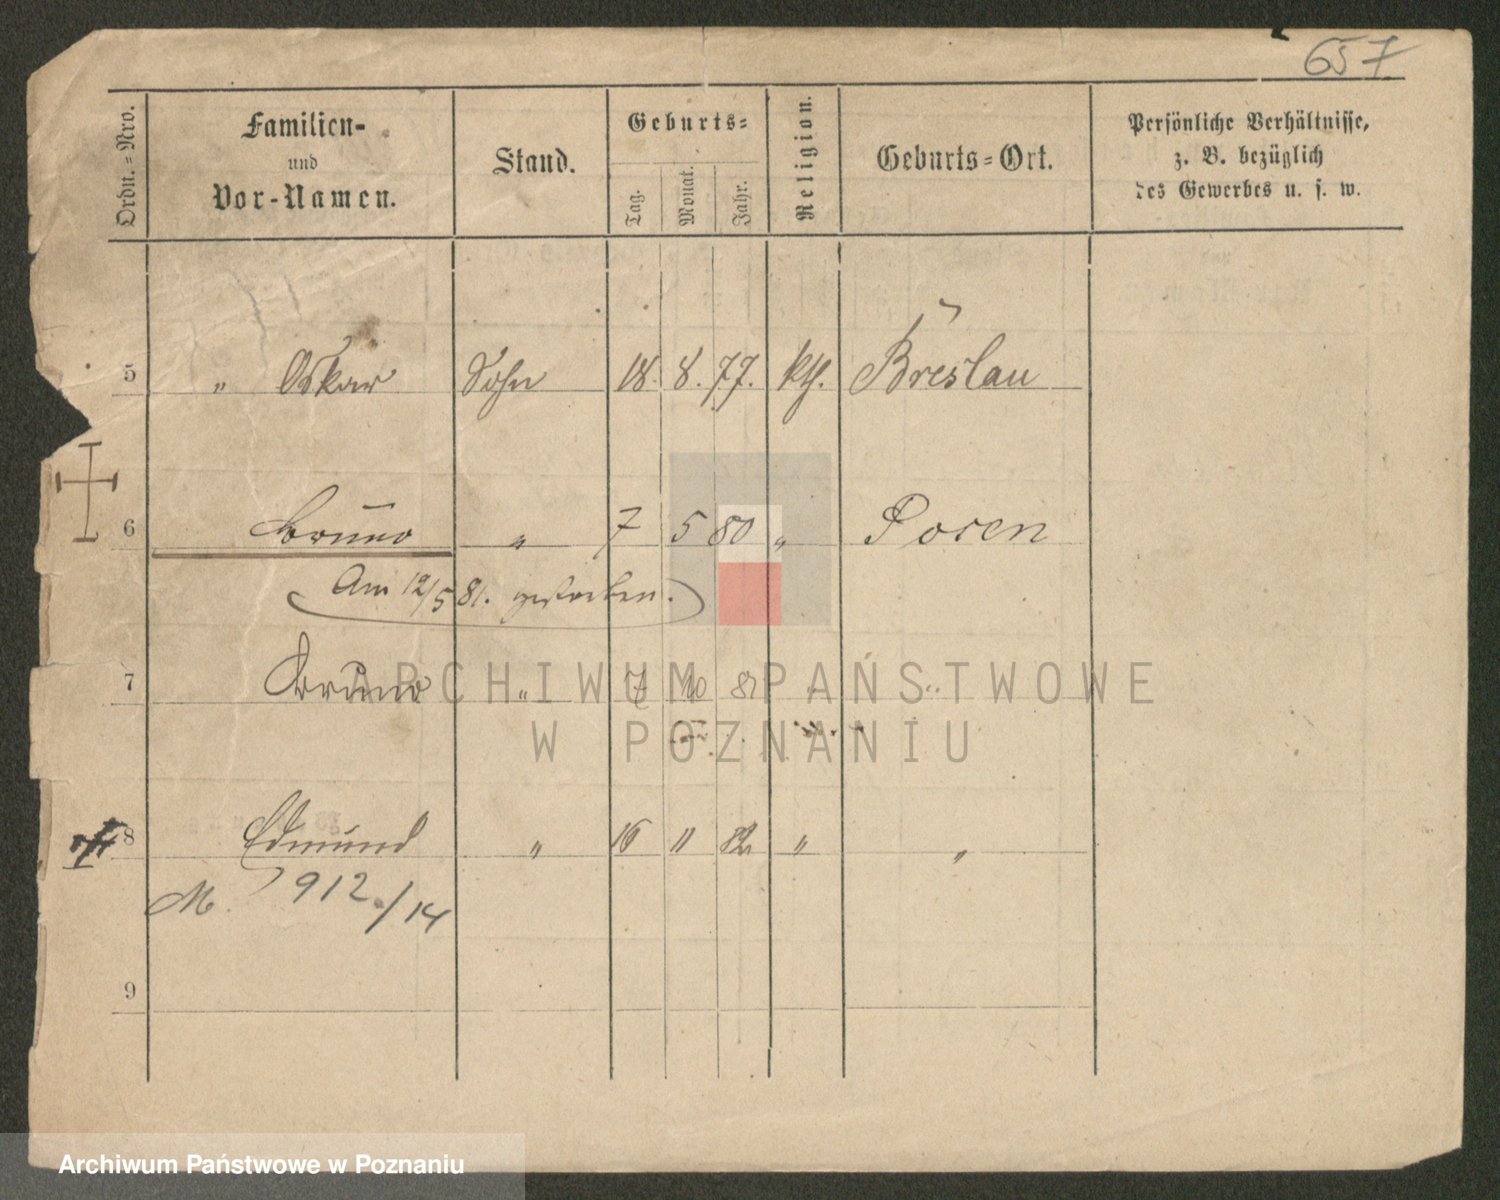 657
Ordn.=Nro. Familien- und Vor-Namen. Stand. Geburts= Tag. Monat. Jahr. Religion. Geburts=Ort. Persönliche Verhältnisse, z. B. bezüglich des Gewerbes u. s. w.
5 " Oskar Sohn 18. 8. 77. kth. Breslau
6 Bruno " 7 5 80 " Posen
Am 12/5 81. gestorben.
7 Bruno " 7 10 81 " "
8 Edmund " 16 11 82 " "
M. 912./14
9
ARCHIWUM PAŃSTWOWE
W POZNANIU
Archiwum Państwowe w Poznaniu